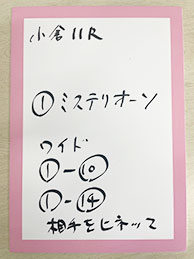 小倉11R
①ミステリオーソ
ワイド
①-⑩
①-⑭
相手をヒネッて